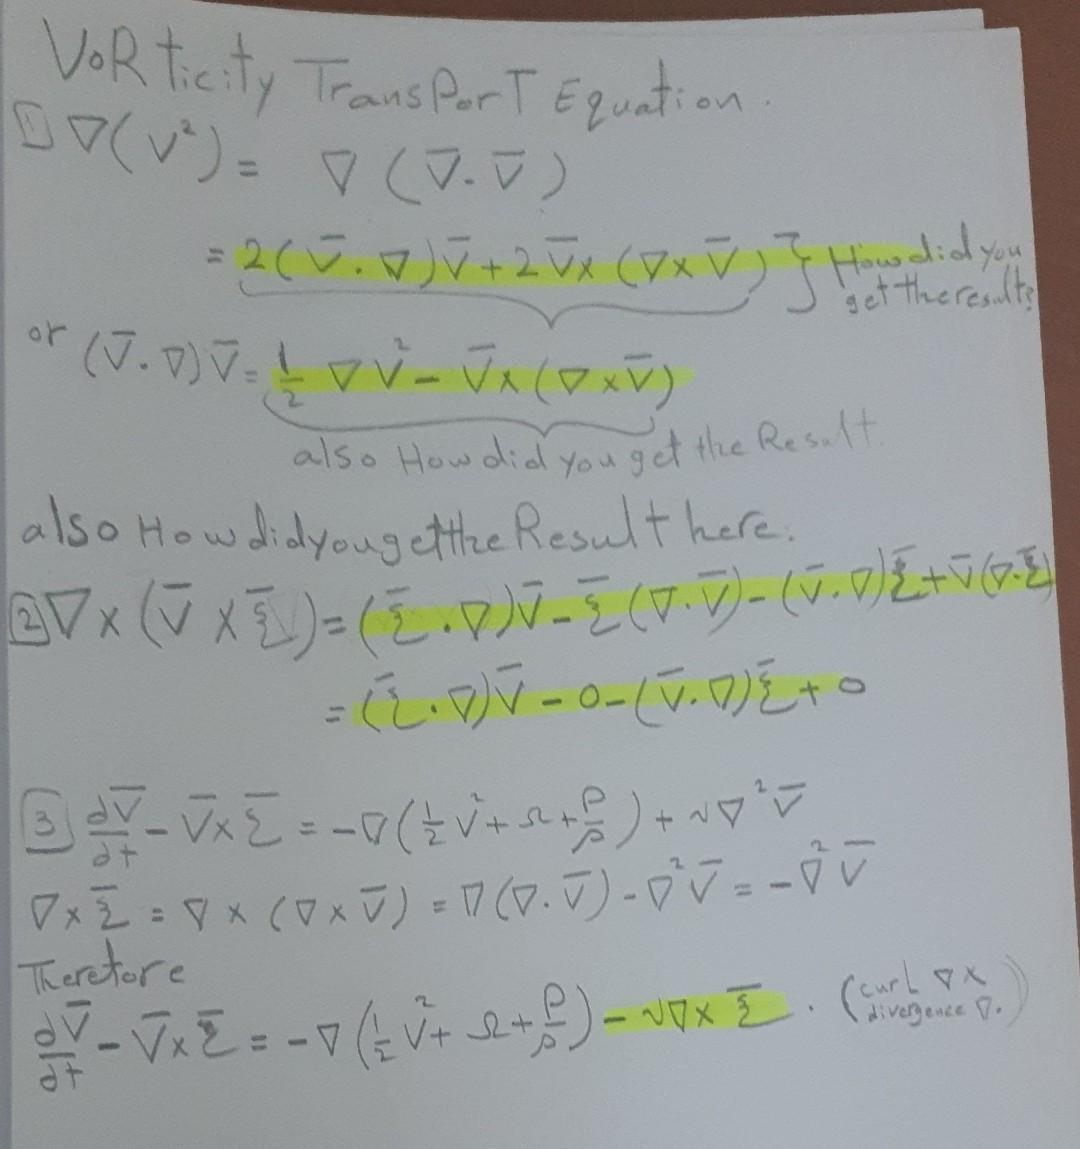 VoRticity TransPorT Equation.
1 ∇(V²) = ∇(V̄.V̄)
= 2(V̄.∇)V̄ + 2V̄x(∇xV̄) } How did you
get the results?
or (V̄.∇)V̄ = 1/2 ∇V² - V̄x(∇xV̄)
also How did you get the Result
also How did you get the Result here.
2 ∇x(V̄xξ̄) = (ξ̄.∇)V̄ - ξ̄(∇.V̄) - (V̄.∇)ξ̄ + V̄(∇.ξ̄)
= (ξ̄.∇)V̄ - 0 - (V̄.∇)ξ̄ + 0
3 ∂V̄/∂t - V̄xξ̄ = -∇(1/2 V² + Ω + P/ρ) + ν∇²V̄
∇xξ̄ = ∇x(∇xV̄) = ∇(∇.V̄) - ∇²V̄ = -∇²V̄
Therefore
∂V̄/∂t - V̄xξ̄ = -∇(1/2 V² + Ω + P/ρ) - ν∇xξ̄. (curl ∇x
divergence ∇.)